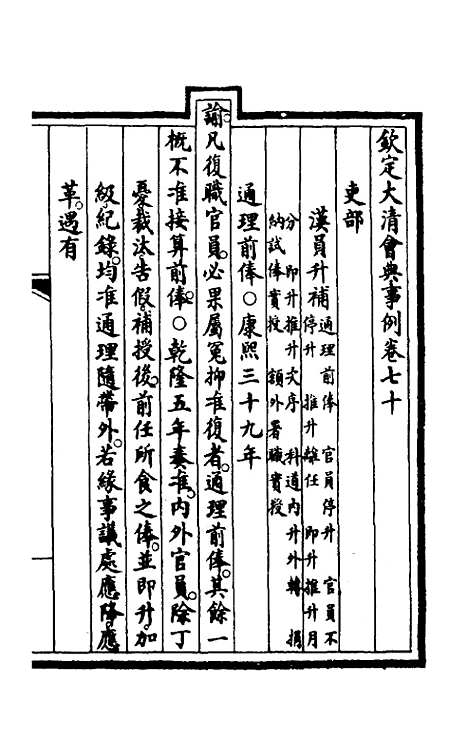 欽定大清會典事例卷七十
吏部
漢員升補通理前俸　官員停升　官員不
停升　推升離任　即升推升月
分　即升推升次序　科道內升外轉　捐
納試俸實授　額外署職實授
通理前俸○康熙三十九年
諭凡復職官員必果屬冤抑准復者通理前俸其餘一
概不准接算前俸○乾隆五年奏准內外官員除丁
憂裁汰告假補授後前任所食之俸並即升加
級紀錄均准通理隨帶外若緣事議處應降應
革遇有